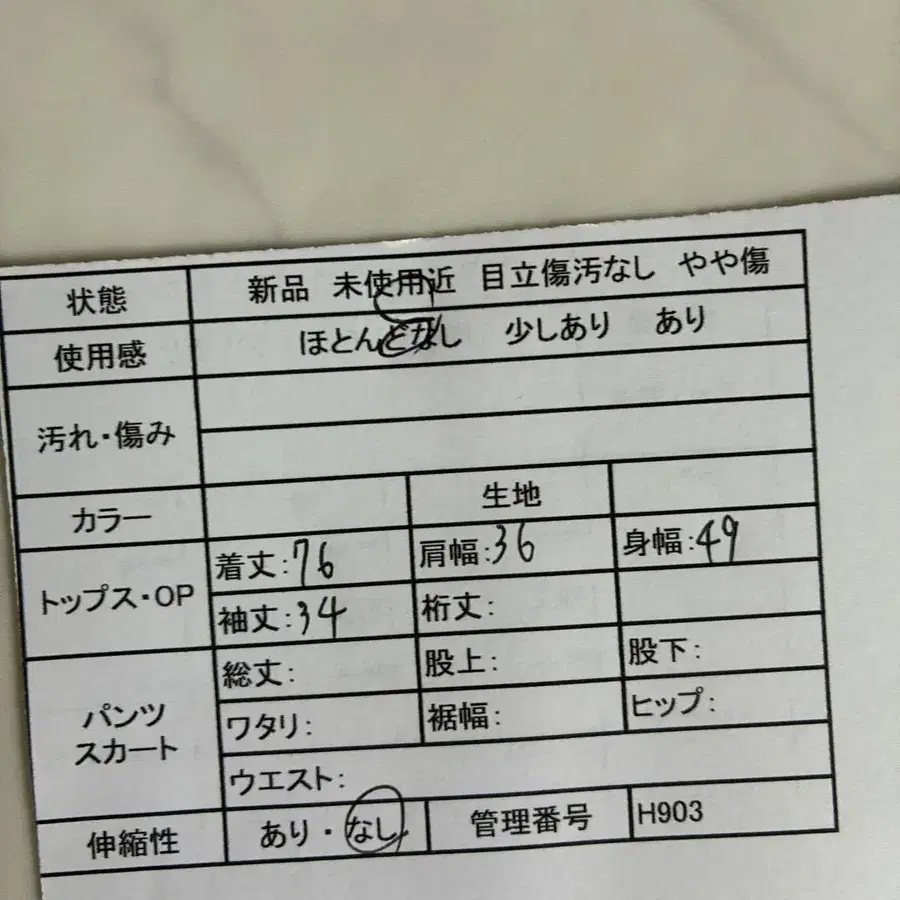 状態 新品 未使用近 目立傷汚なし やや傷
使用感 ほとんどなし 少しあり あり
汚れ・傷み
カラー 生地
トップス・OP 着丈:76 肩幅:36 身幅:49
袖丈:34 裄丈:
パンツ スカート 総丈: 股上: 股下:
ワタリ: 裾幅: ヒップ:
ウエスト:
伸縮性 あり・なし 管理番号 H903